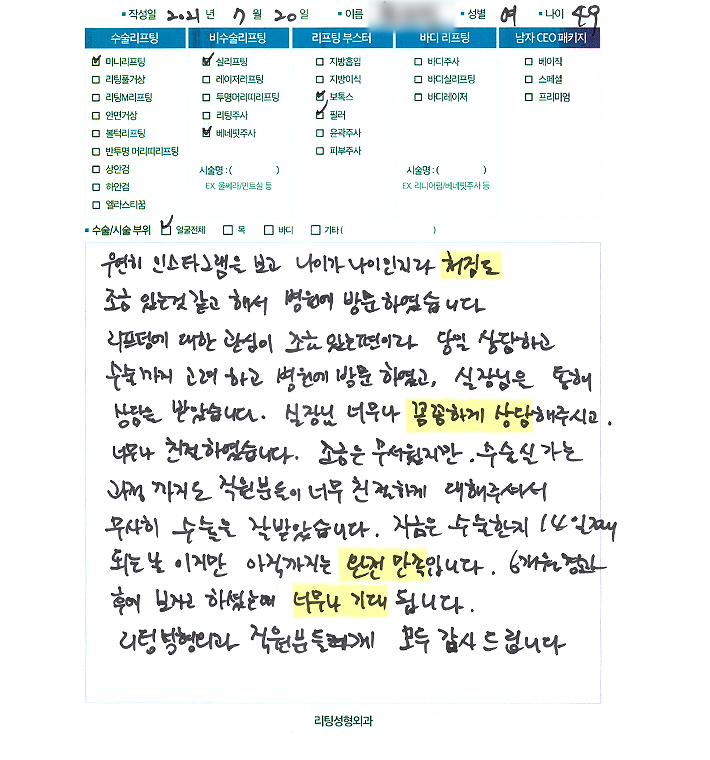 작성일 2021 년 7 월 20 일 이름 성별 여 나이 49
수술리프팅 비수술리프팅 리프팅 부스터 바디 리프팅 남자 CEO 패키지
미니리프팅 실리프팅 지방흡입 바디주사 베이직
리팅풀거상 레이저리프팅 지방이식 바디실리프팅 스페셜
리팅M리프팅 투명머리띠리프팅 보톡스 바디레이저 프리미엄
안면거상 리팅주사 필러
볼턱리프팅 베네핏주사 윤곽주사
반투명 머리띠리프팅 피부주사
상안검 시술명 : ( ) 시술명 : ( )
하안검 EX. 울쎄라/민트실 등 EX. 리니어펌/베네핏주사 등
엘라스티꿈
수술/시술 부위 얼굴전체 목 바디 기타 ( )
우연히 인스타그램은 보고 나이가 나이인지라 처짐도
조금 있는것 같고 해서 병원에 방문하였습니다
리프팅에 대한 관심이 조금 있는편이라 당일 상담하고
수술까지 고려하고 병원에 방문하였고, 실장님은 통해
상담을 받았습니다. 실장님 너무나 꼼꼼하게 상담해주시고.
너무나 친절하였습니다. 조금은 무서웠지만. 수술실 가는
과정 까지도 직원분들이 너무 친절하게 대해주셔서
무사히 수술은 잘받았습니다. 지금은 수술한지 14일째
되는날 이지만 아직까지는 완전 만족입니다. 6개월경과
후에 보자고 하셨는데 너무나 기대 됩니다.
리팅성형외과 직원분들에게 모두 감사드립니다
리팅성형외과